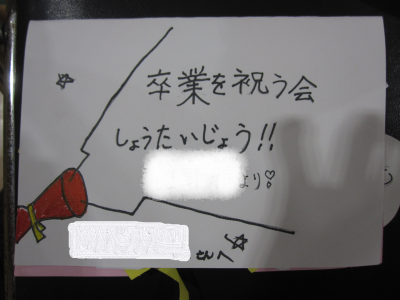 卒業を祝う会
しょうたいじょう!!
より!
さんへ